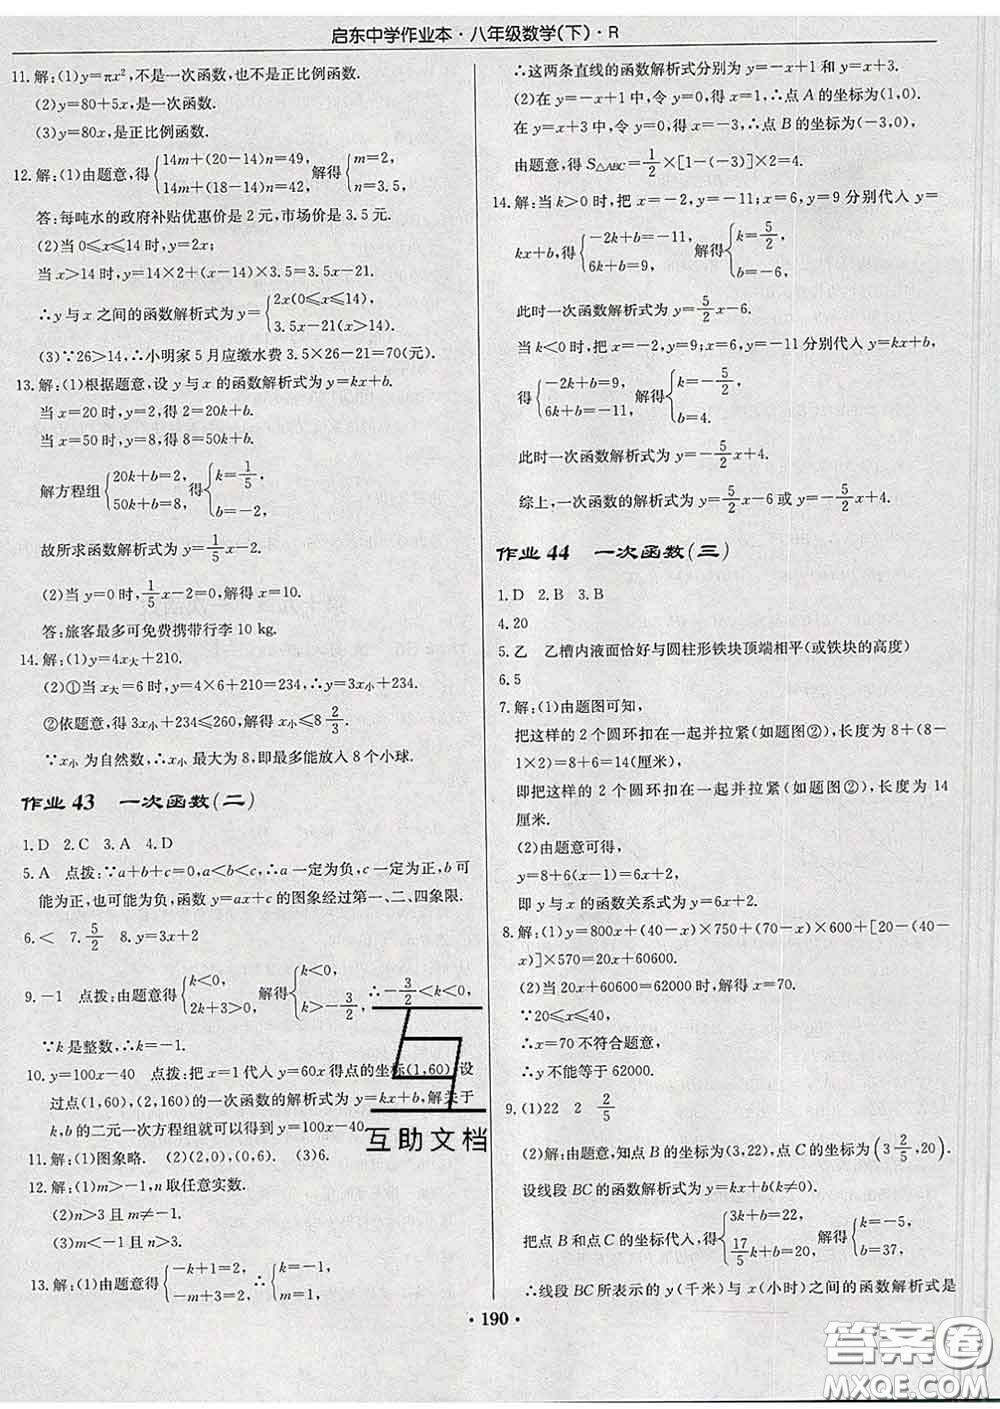 启东中学作业本·八年级数学(下)·R
11.解:(1)y=πx²,不是一次函数,也不是正比例函数.
(2)y=80+5x,是一次函数.
(3)y=80x,是正比例函数.
12.解:(1)由题意,得{14m+(20-14)n=49, 14m+(18-14)n=42, 解得{m=2, n=3.5.
答:每吨水的政府补贴优惠价是 2 元,市场价是 3.5 元.
(2)当 0≤x≤14 时,y=2x;
当 x>14 时,y=14×2+(x-14)×3.5=3.5x-21.
∴y 与 x 之间的函数解析式为 y={2x(0≤x≤14), 3.5x-21(x>14).
(3)∵26>14,∴小明家 5 月应缴水费 3.5×26-21=70(元).
13.解:(1)根据题意,设 y 与 x 的函数解析式为 y=kx+b.
当 x=20 时,y=2,得 2=20k+b.
当 x=50 时,y=8,得 8=50k+b.
解方程组{20k+b=2, 50k+b=8, 得{k=1/5, b=-2,
故所求函数解析式为 y=1/5x-2.
(2)当 y=0 时,1/5x-2=0,解得 x=10.
答:旅客最多可免费携带行李 10 kg.
14.解:(1)y=4x大+210.
(2)①当 x大=6 时,y=4×6+210=234,∴y=3x小+234.
②依题意,得 3x小+234≤260,解得 x小≤8 2/3.
∵x小 为自然数,∴x小 最大为 8,即最多能放入 8 个小球.
作业 43 一次函数(二)
1.D 2.C 3.A 4.D
5.A 点拨:∵a+b+c=0,a<b<c,∴a 一定为负,c 一定为正,b 可
能为正,也可能为负,函数 y=ax+c 的图象经过第一、二、四象限.
6.< 7.5/2 8.y=3x+2
9.-1 点拨:由题意得{k<0, 2k+3>0, 解得{k<0, k>-3/2, ∴-3/2<k<0,
∵k 是整数,∴k=-1.
10.y=100x-40 点拨:把 x=1 代入 y=60x 得点的坐标(1,60),设
过点(1,60),(2,160)的一次函数的解析式为 y=kx+b,解关于
k,b 的二元一次方程组就可以得到 y=100x-40.
11.(1)图象略. (2)(2,0),(0,6). (3)6.
12.解:(1)m>-1,n 取任意实数.
(2)n>3 且 m≠-1.
(3)m<-1 且 n<3.
13.解:(1)由题意得{-k+1=2, -m+3=2, ∴{k=-1, m=1,
∴这两条直线的函数解析式分别为 y=-x+1 和 y=x+3.
(2)在 y=-x+1 中,令 y=0,得 x=1,∴点 A 的坐标为(1,0).
在 y=x+3 中,令 y=0,得 x=-3,∴点 B 的坐标为(-3,0),
由题意,得 S△ABC=1/2×[1-(-3)]×2=4.
14.解:当 k>0 时,把 x=-2,y=-11;x=6,y=9 分别代入 y=
kx+b,得{-2k+b=-11, 6k+b=9, 解得{k=5/2, b=-6.
此时一次函数解析式为 y=5/2x-6.
当 k<0 时,把 x=-2,y=9;x=6,y=-11 分别代入 y=kx+b,
得{-2k+b=9, 6k+b=-11, 解得{k=-5/2, b=4.
此时一次函数解析式为 y=-5/2x+4.
综上,一次函数的解析式为 y=5/2x-6 或 y=-5/2x+4.
作业 44 一次函数(三)
1.D 2.B 3.B
4.20
5.乙 乙槽内液面恰好与圆柱形铁块顶端相平(或铁块的高度)
6.5
7.解:(1)由题图可知,
把这样的 2 个圆环扣在一起并拉紧(如题图②),长度为 8+(8-
1×2)=8+6=14(厘米),
即把这样的 2 个圆环扣在一起并拉紧(如题图②),长度为 14
厘米.
(2)由题意可得,
y=8+6(x-1)=6x+2,
即 y 与 x 的函数关系式为 y=6x+2.
8.解:(1)y=800x+(40-x)×750+(70-x)×600+[20-(40-
x)]×570=20x+60600.
(2)当 20x+60600=62000 时,解得 x=70.
∵20≤x≤40,
∴x=70 不符合题意,
∴y 不能等于 62000.
9.(1)22 2 2/5
(2)解:由题意,知点 B 的坐标为(3,22),点 C 的坐标为(3 2/5,20).
设线段 BC 的函数解析式为 y=kx+b(k≠0).
把点 B 和点 C 的坐标代入,得{3k+b=22, 17/5k+b=20, 解得{k=-5, b=37,
∴线段 BC 所表示的 y(千米)与 x(小时)之间的函数解析式是
·190·
互助文档
答案卷
MXQE.COM